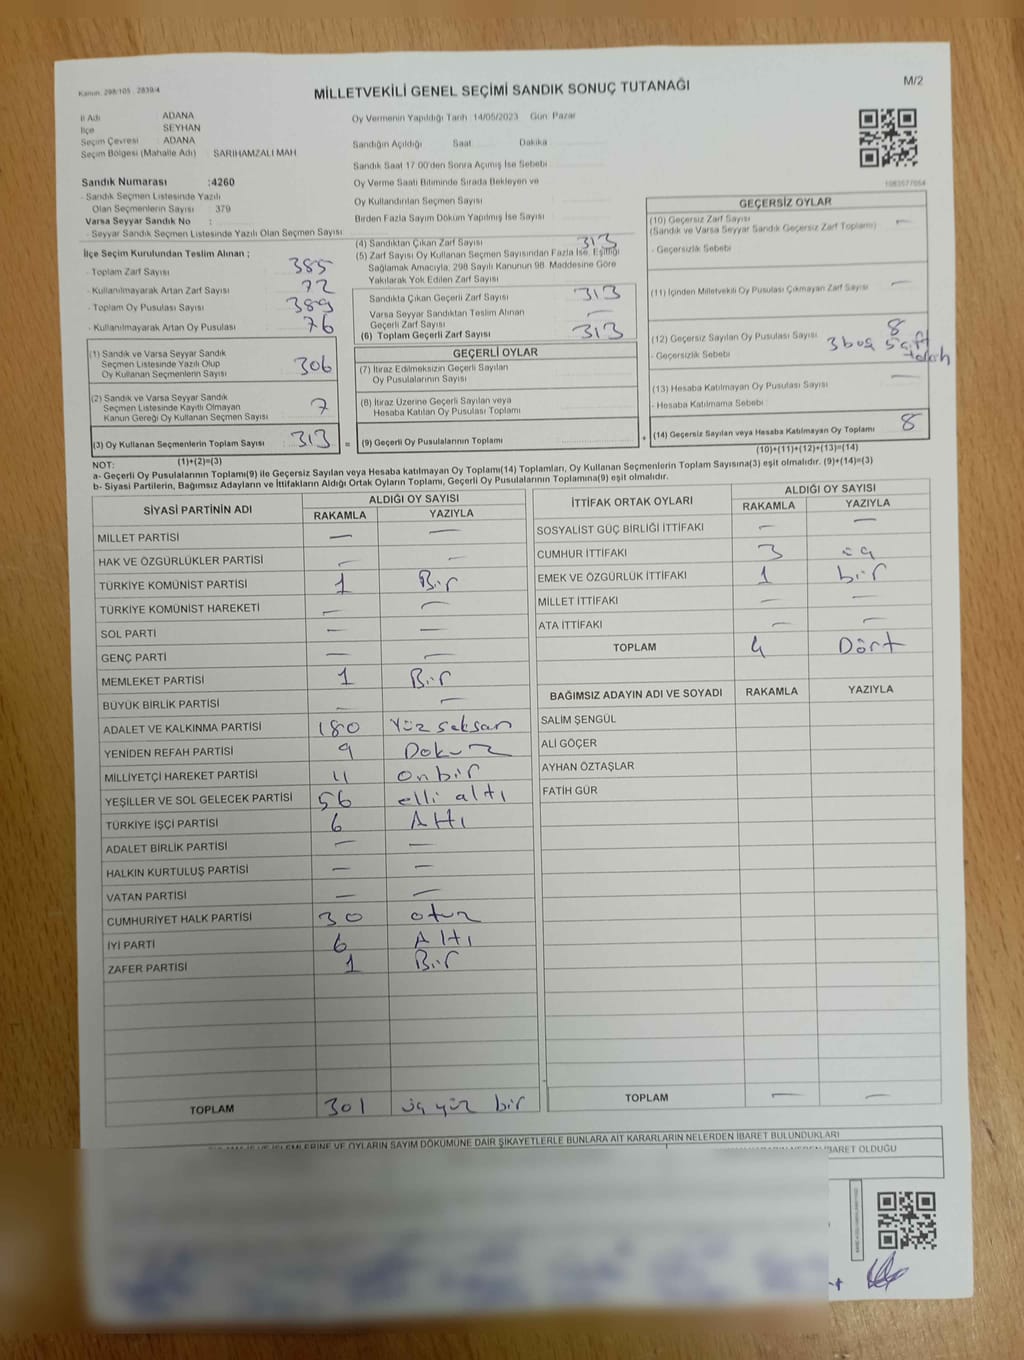 Kanun: 298/105 . 2839/4
MİLLETVEKİLİ GENEL SEÇİMİ SANDIK SONUÇ TUTANAĞI
M/2
İl Adı ADANA
İlçe SEYHAN
Seçim Çevresi ADANA
Seçim Bölgesi (Mahalle Adı) SARIHAMZALI MAH
Oy Vermenin Yapıldığı Tarih :14/05/2023 Gün: Pazar
Sandığın Açıldığı Saat Dakika
Sandık Saat 17:00'den Sonra Açımış İse Sebebi
Oy Verme Saati Bitiminde Sırada Bekleyen ve
Oy Kullandırılan Seçmen Sayısı
Birden Fazla Sayım Döküm Yapılmış İse Sayısı
1083577054
Sandık Numarası :4260
- Sandık Seçmen Listesinde Yazılı
Olan Seçmenlerin Sayısı : 379
Varsa Seyyar Sandık No :
- Seyyar Sandık Seçmen Listesinde Yazılı Olan Seçmen Sayısı
İlçe Seçim Kurulundan Teslim Alınan ;
- Toplam Zarf Sayısı 385
- Kullanılmayarak Artan Zarf Sayısı 72
- Toplam Oy Pusulası Sayısı 389
- Kullanılmayarak Artan Oy Pusulası 76
(1) Sandık ve Varsa Seyyar Sandık
Seçmen Listesinde Yazılı Olup
Oy Kullanan Seçmenlerin Sayısı 306
(2) Sandık ve Varsa Seyyar Sandık
Seçmen Listesinde Kayıtlı Olmayan
Kanun Gereği Oy Kullanan Seçmen Sayısı 7
(3) Oy Kullanan Seçmenlerin Toplam Sayısı 313 =
(1)+(2)=(3)
(4) Sandıktan Çıkan Zarf Sayısı 313
(5) Zarf Sayısı Oy Kullanan Seçmen Sayısından Fazla İse, Eşitliği
Sağlamak Amacıyla, 298 Sayılı Kanunun 98. Maddesine Göre
Yakılarak Yok Edilen Zarf Sayısı
Sandıkta Çıkan Geçerli Zarf Sayısı 313
Varsa Seyyar Sandıktan Teslim Alınan
Geçerli Zarf Sayısı —
(6) Toplam Geçerli Zarf Sayısı 313
GEÇERLİ OYLAR
(7) İtiraz Edilmeksizin Geçerli Sayılan
Oy Pusulalarının Sayısı
(8) İtiraz Üzerine Geçerli Sayılan veya
Hesaba Katılan Oy Pusulası Toplamı
(9) Geçerli Oy Pusulalarının Toplamı +
GEÇERSİZ OYLAR
(10) Geçersiz Zarf Sayısı —
(Sandık ve Varsa Seyyar Sandık Geçersiz Zarf Toplamı)
- Geçersizlik Sebebi
(11) İçinden Milletvekili Oy Pusulası Çıkmayan Zarf Sayısı —
(12) Geçersiz Sayılan Oy Pusulası Sayısı 8
- Geçersizlik Sebebi 3 boş 5 çift
(13) Hesaba Katılmayan Oy Pusulası Sayısı —
- Hesaba Katılmama Sebebi
(14) Geçersiz Sayılan veya Hesaba Katılmayan Oy Toplamı 8
(10)+(11)+(12)+(13)=(14)
NOT:
a- Geçerli Oy Pusulalarının Toplamı(9) ile Geçersiz Sayılan veya Hesaba katılmayan Oy Toplamı(14) Toplamları, Oy Kullanan Seçmenlerin Toplam Sayısına(3) eşit olmalıdır. (9)+(14)=(3)
b- Siyasi Partilerin, Bağımsız Adayların ve İttifakların Aldığı Ortak Oyların Toplamı, Geçerli Oy Pusulalarının Toplamına(9) eşit olmalıdır.
SİYASİ PARTİNİN ADI ALDIĞI OY SAYISI
RAKAMLA YAZIYLA
MİLLET PARTİSİ — —
HAK VE ÖZGÜRLÜKLER PARTİSİ — —
TÜRKİYE KOMÜNİST PARTİSİ 1 Bir
TÜRKİYE KOMÜNİST HAREKETİ — —
SOL PARTİ — —
GENÇ PARTİ — —
MEMLEKET PARTİSİ 1 Bir
BÜYÜK BİRLİK PARTİSİ — —
ADALET VE KALKINMA PARTİSİ 180 Yüz seksan
YENİDEN REFAH PARTİSİ 9 Dokuz
MİLLİYETÇİ HAREKET PARTİSİ 11 onbir
YEŞİLLER VE SOL GELECEK PARTİSİ 56 elli altı
TÜRKİYE İŞÇİ PARTİSİ 6 Altı
ADALET BİRLİK PARTİSİ — —
HALKIN KURTULUŞ PARTİSİ — —
VATAN PARTİSİ — —
CUMHURİYET HALK PARTİSİ 30 otuz
İYİ PARTİ 6 Altı
ZAFER PARTİSİ 1 Bir
TOPLAM 301 üç yüz bir
İTTİFAK ORTAK OYLARI ALDIĞI OY SAYISI
RAKAMLA YAZIYLA
SOSYALİST GÜÇ BİRLİĞİ İTTİFAKI — —
CUMHUR İTTİFAKI 3 üç
EMEK VE ÖZGÜRLÜK İTTİFAKI 1 bir
MİLLET İTTİFAKI — —
ATA İTTİFAKI — —
TOPLAM 4 Dört
BAĞIMSIZ ADAYIN ADI VE SOYADI RAKAMLA YAZIYLA
SALİM ŞENGÜL
ALİ GÖÇER
AYHAN ÖZTAŞLAR
FATİH GÜR
TOPLAM — —
OYLARIN SAYIM DÖKÜMÜNE DAİR ŞİKAYETLERLE BUNLARA AİT KARARLARIN NELERDEN İBARET BULUNDUKLARI
İBARET OLDUĞU